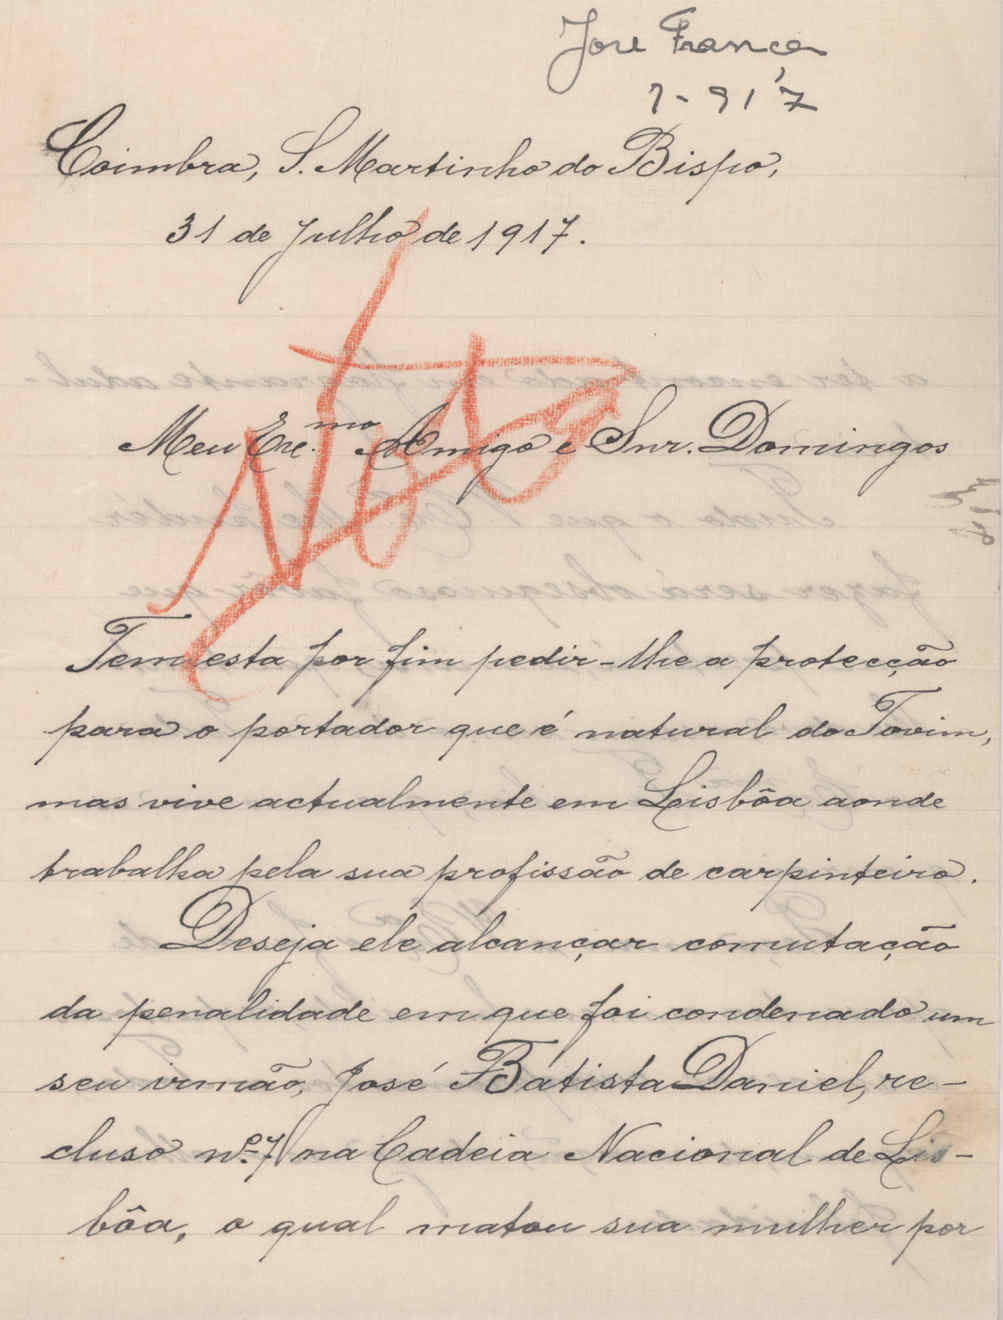 José França
7-917
Coimbra, S. Martinho do Bispo,
31 de Julho de 1917.
Meu Exc.mo Amigo e Snr. Domingos
Tem esta por fim pedir-lhe a protecção
para o portador que é natural do Tovim,
mas vive actualmente em Lisbôa aonde
trabalha pela sua profissão de carpinteiro.
Deseja ele alcançar comutação
da penalidade em que foi condenado um
seu irmão, José Batista Daniel, re-
cluso nº 71 na Cadeia Nacional de Lis-
bôa, o qual matou sua mulher por